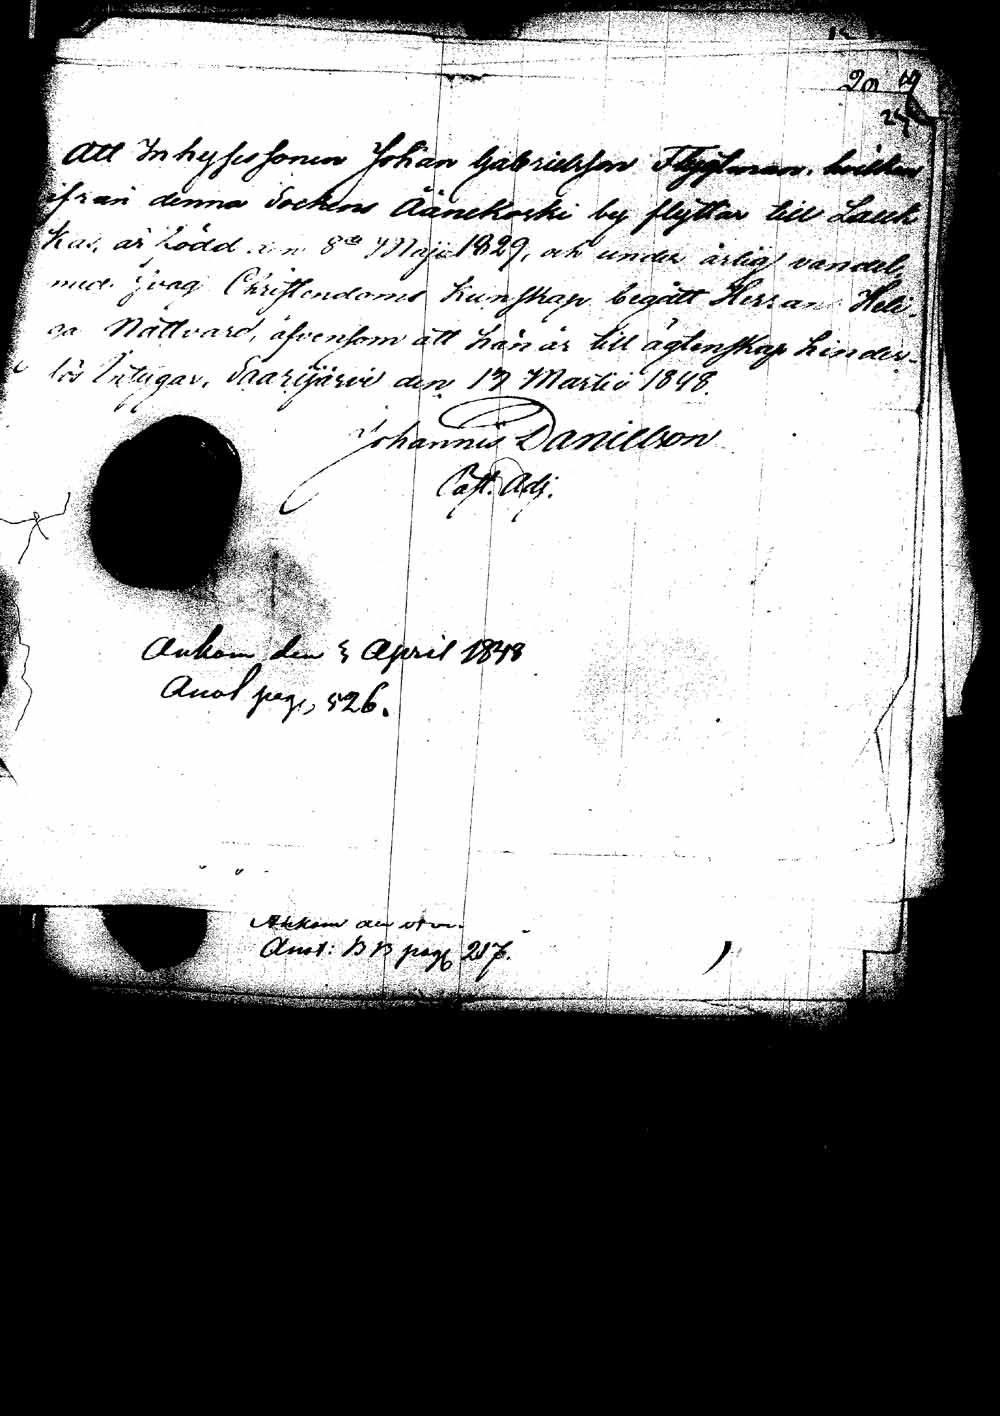 20 19
24
Att Inhysessonen Johan Gabrielsson Flygtman, hvilken
ifrån denna Sockens Äänekoski by flyttar till Lauk
kas, är född den 8de Maji 1829, och under ärlig vandel,
med svag Christendoms kunskap begått Herrans Heli-
ga Nattvard, äfvensom att han är till ägtenskap hinder-
lös Intygar, Saarijärvi den 17 Martii 1848.
Johannes Danielson
Past. Adj.
Ankom den April 1848
Anot pag, 526.
Ankom den
Anot: BB pag 217.